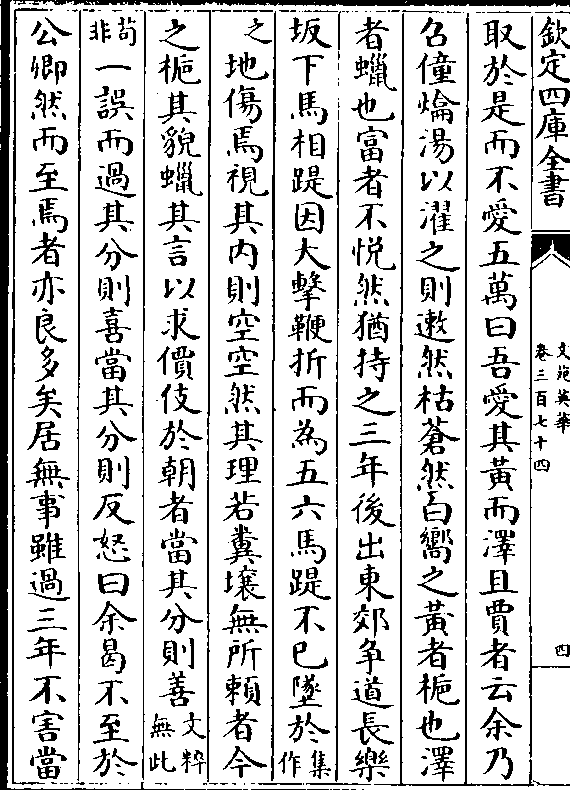 欽定四庫全書
文苑英華
卷三百七十四
四
取於是而不愛五萬曰吾愛其黃而澤且賈者云余乃
召僮爚湯以濯之則遬然枯蒼然白嚮之黃者梔也澤
者蠟也富者不悅然猶持之三年後出東郊爭道長樂
坂下馬相踶因大擊鞭折而為五六馬踶不已墜於集作
之地傷焉視其內則空空然其理若糞壤無所賴者今
之梔其貌蠟其言以求價伎於朝者當其分則善文粹無此
苟非一誤而過其分則喜當其分則反怒曰余曷不至於
公卿然而至焉者亦良多矣居無事雖過三年不害當